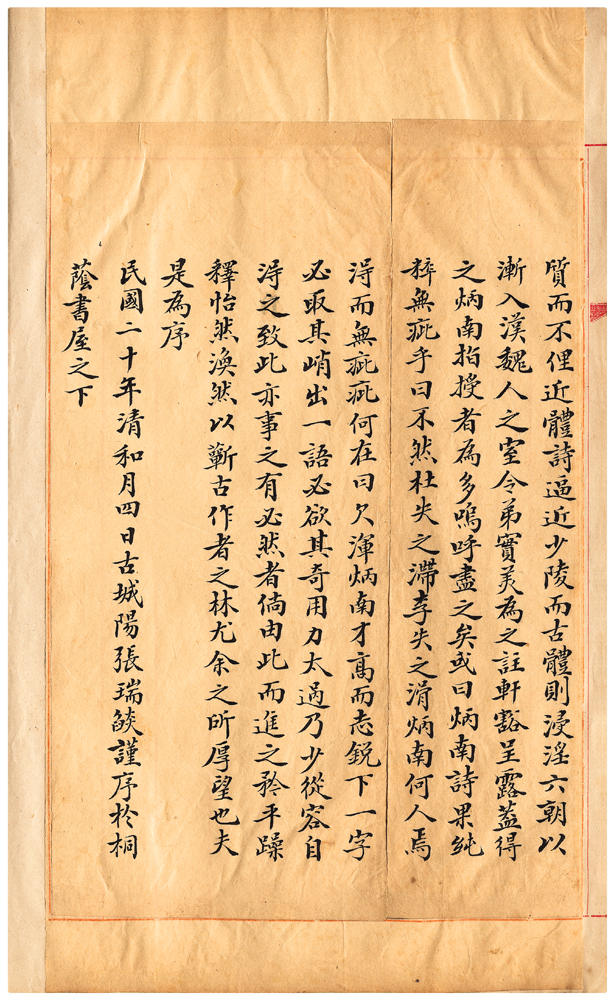 質而不俚近體詩逼近少陵而古體則浸淫六朝以
漸入漢魏人之室令弟實美為之註軒豁呈露蓋得
之炳南指授者為多嗚呼盡之矣或曰炳南詩果純
粹無疵乎曰不然杜失之滯李失之滑炳南何人焉
得而無疵疵何在曰欠渾炳南才高而志銳下一字
必取其峭出一語必欲其奇用力太過乃少從容自
得之致此亦事之有必然者倘由此而進之矜平躁
釋怡然渙然以蘄古作者之林尤余之所厚望也夫
是為序
民國二十年清和月四日古城陽張瑞燄謹序於桐
蔭書屋之下